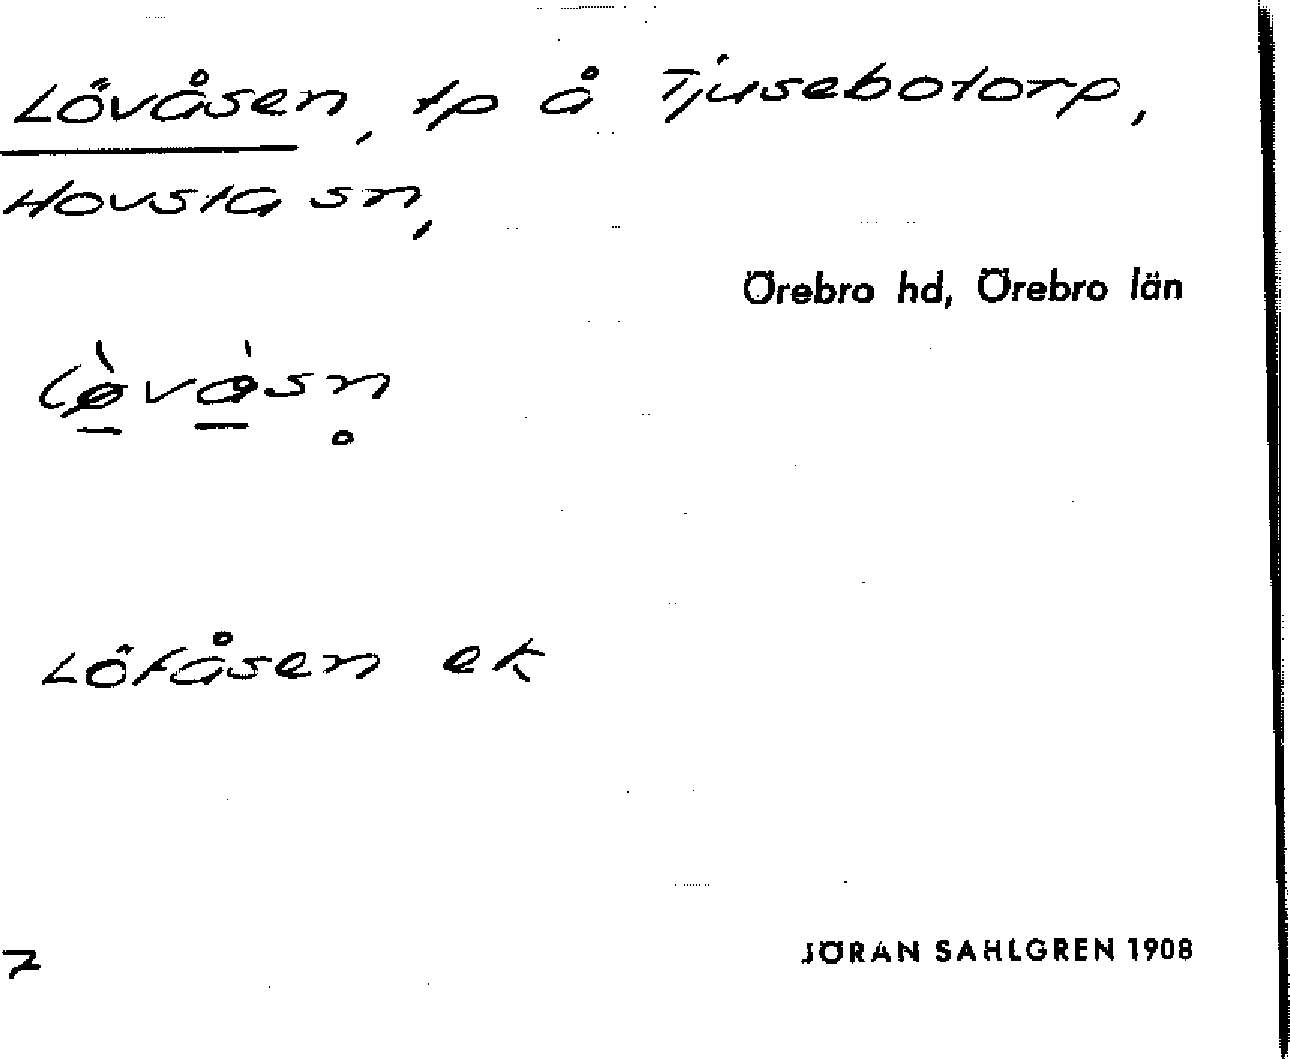 Lövåsen, tp å Tjusebotorp,
Hovsta sn,
Örebro hd, Örebro län
lø̀vå̀sn̥
Löfåsen ek
7
JÖRAN SAHLGREN 1908